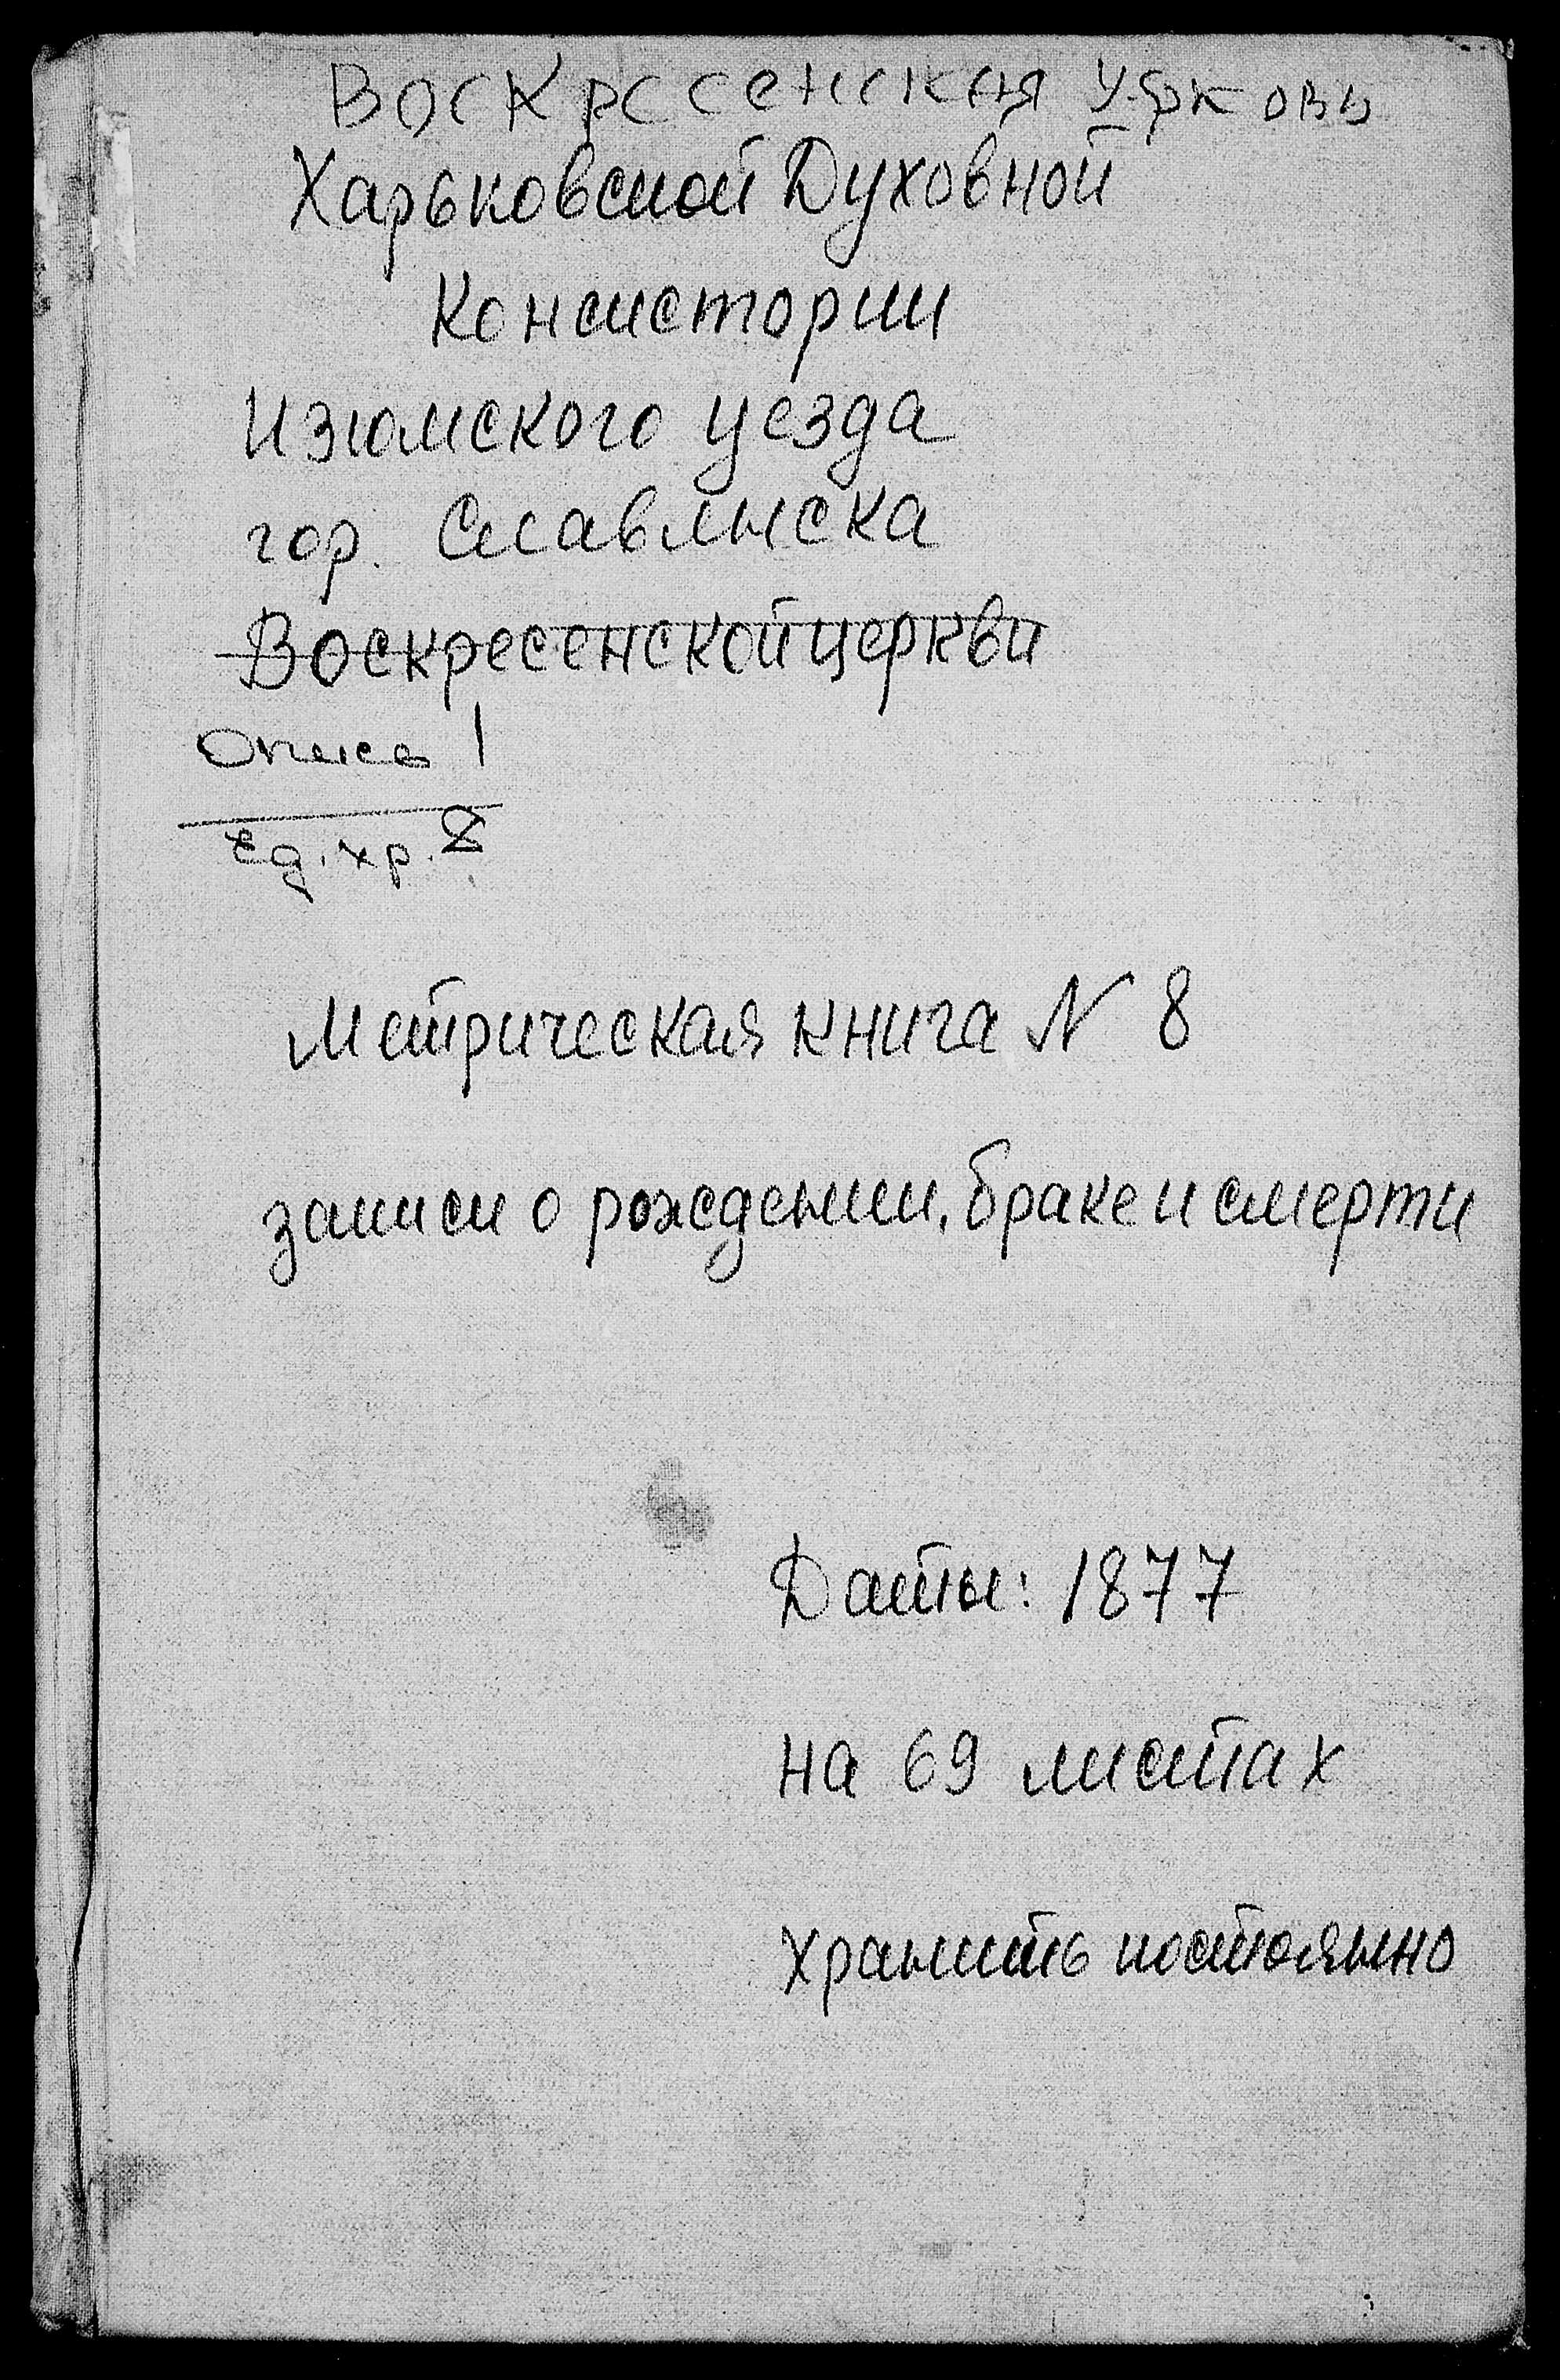 Воскресенская церковь
Харьковской Духовной
Консистории
Изюмского уезда
гор. Славянска
Воскресенской церкви
Опись 1
Ед. хр. 8
Метрическая книга N 8
записи о рождении, браке и смерти
Даты: 1877
на 69 листах
хранить постоянно